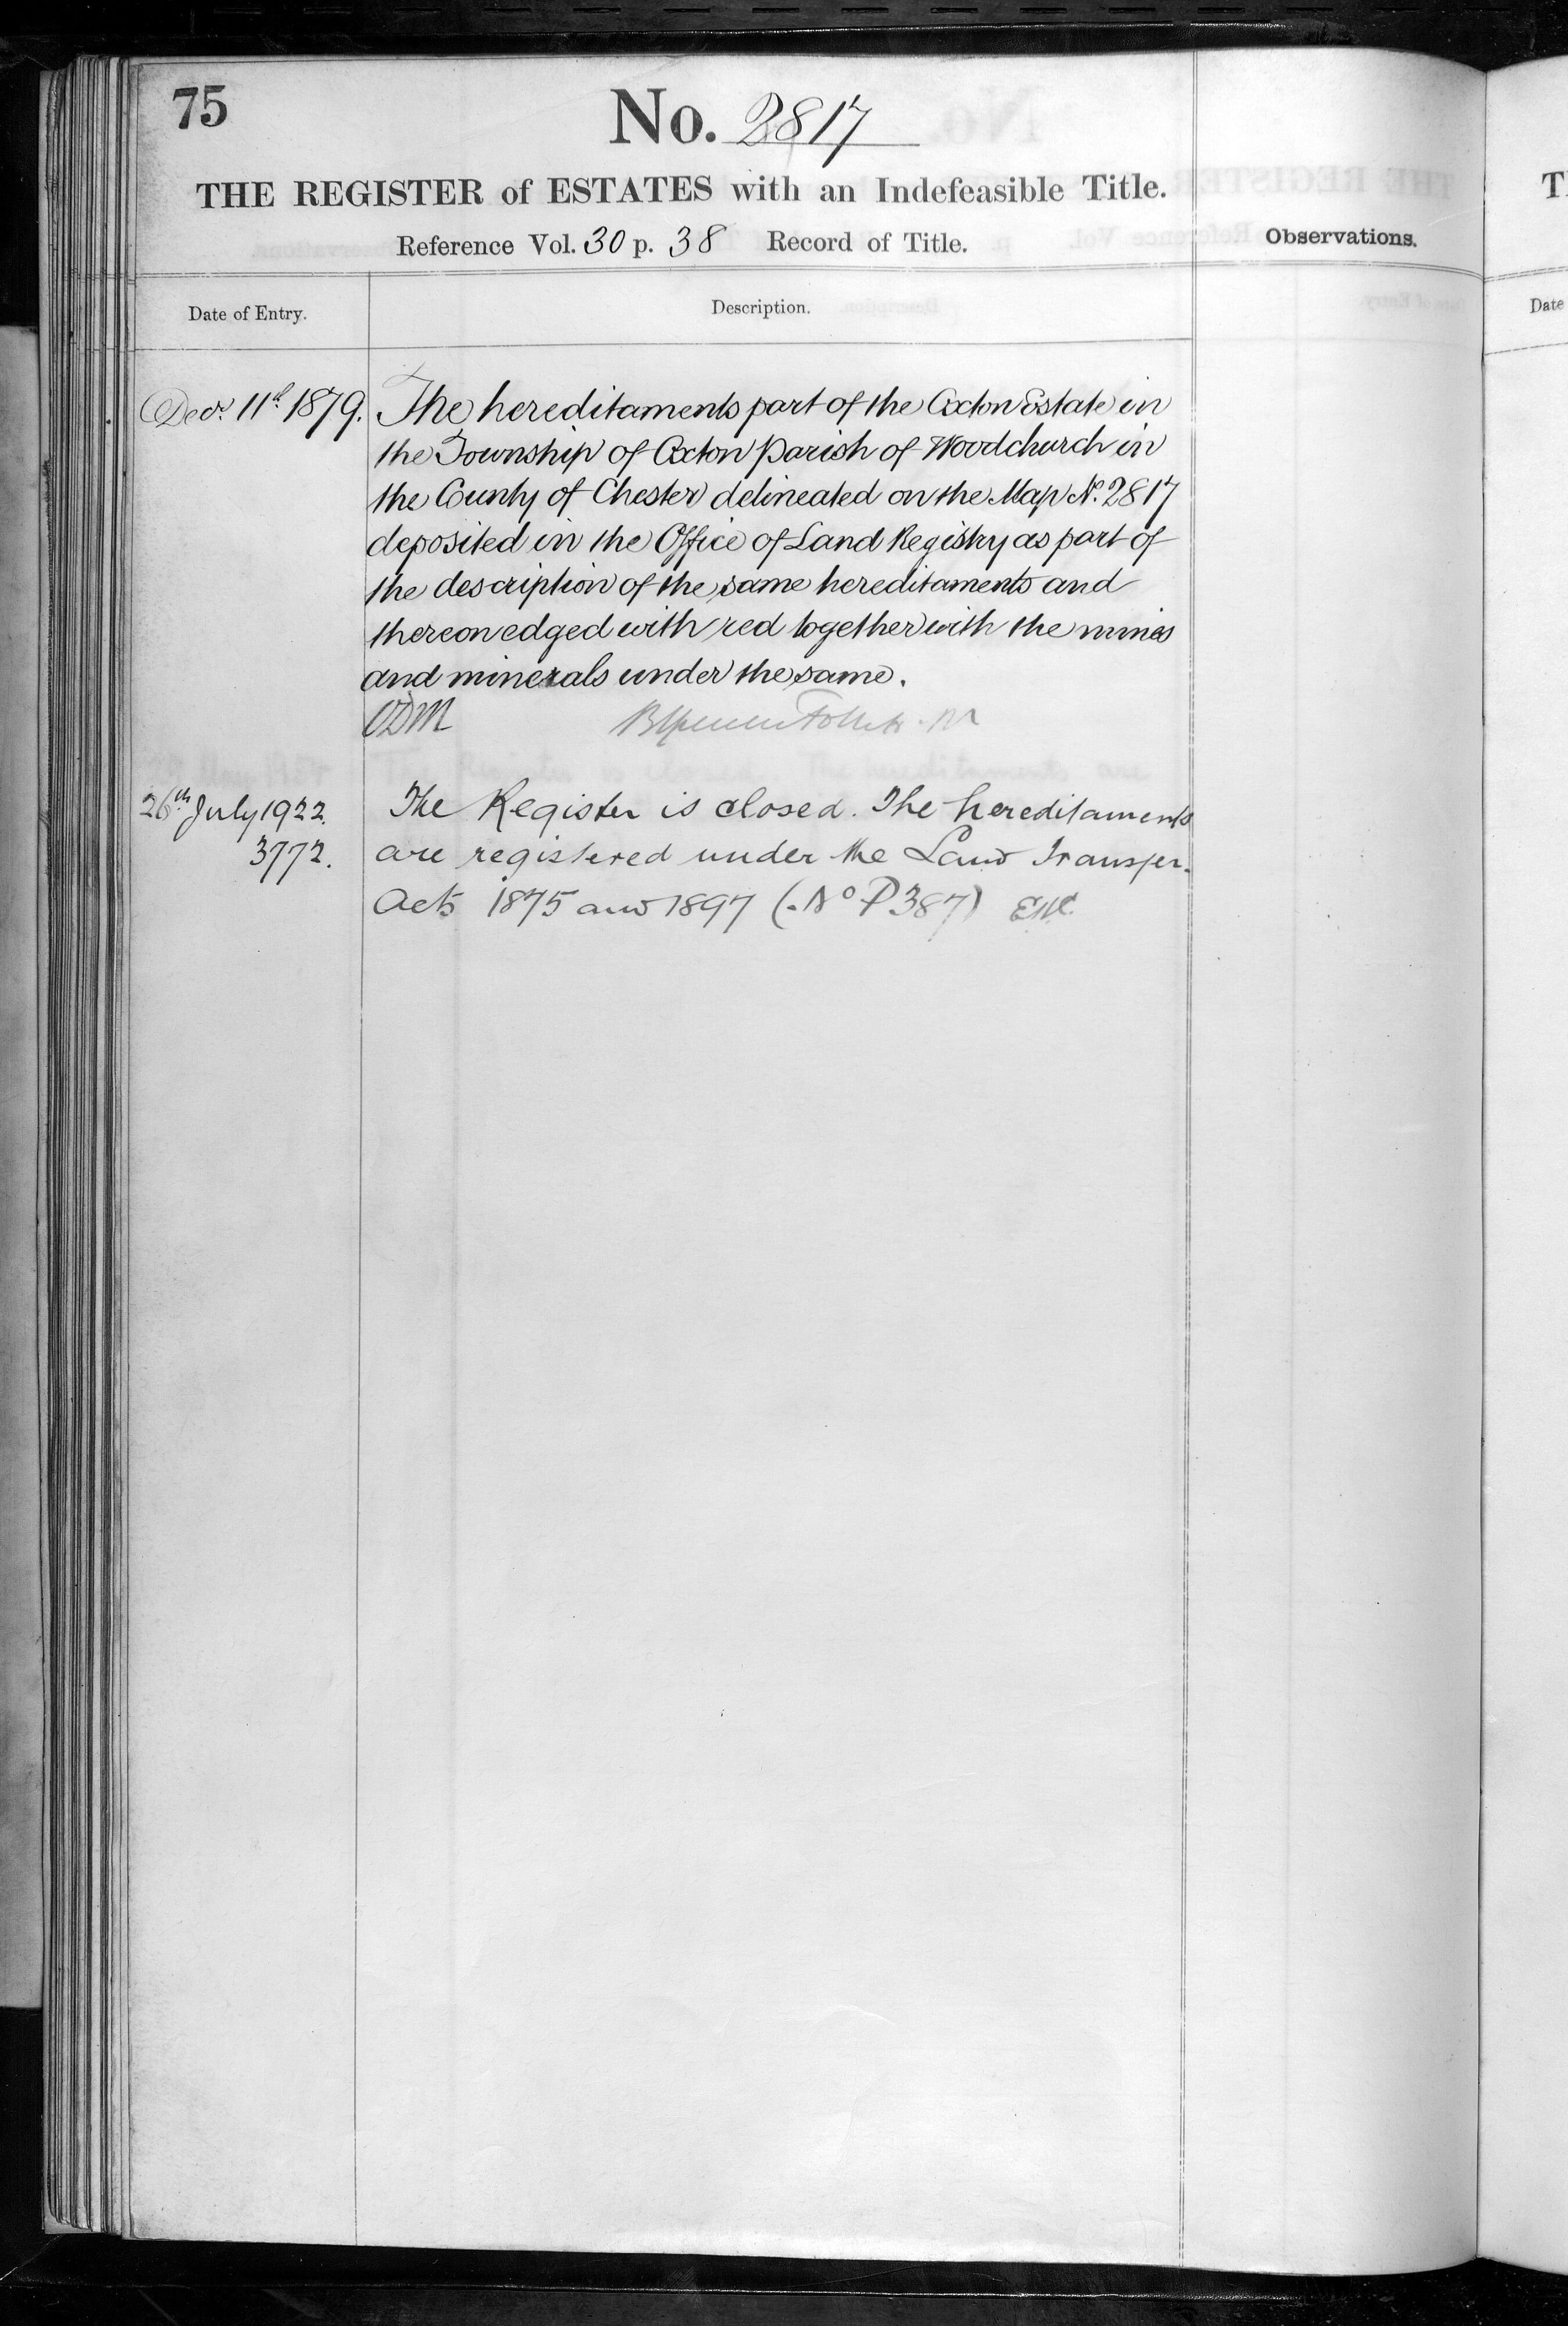 75
No. 2817
THE REGISTER of ESTATES with an Indefeasible Title.
Reference Vol. 30 p. 38 Record of Title.
Observations.
Date of Entry.
Description.
Decr. 11th 1879.
The hereditaments part of the Oxton Estate in
the Township of Oxton Parish of Woodchurch in
the County of Chester delineated on the Map No. 2817
deposited in the Office of Land Registry as part of
the description of the same hereditaments and
thereon edged with red together with the mines
and minerals under the same.
ODM
26th July 1922.
3772.
The Register is closed. The hereditaments
are registered under the Land Transfer
Acts 1875 and 1897 (No P387)
T
Date